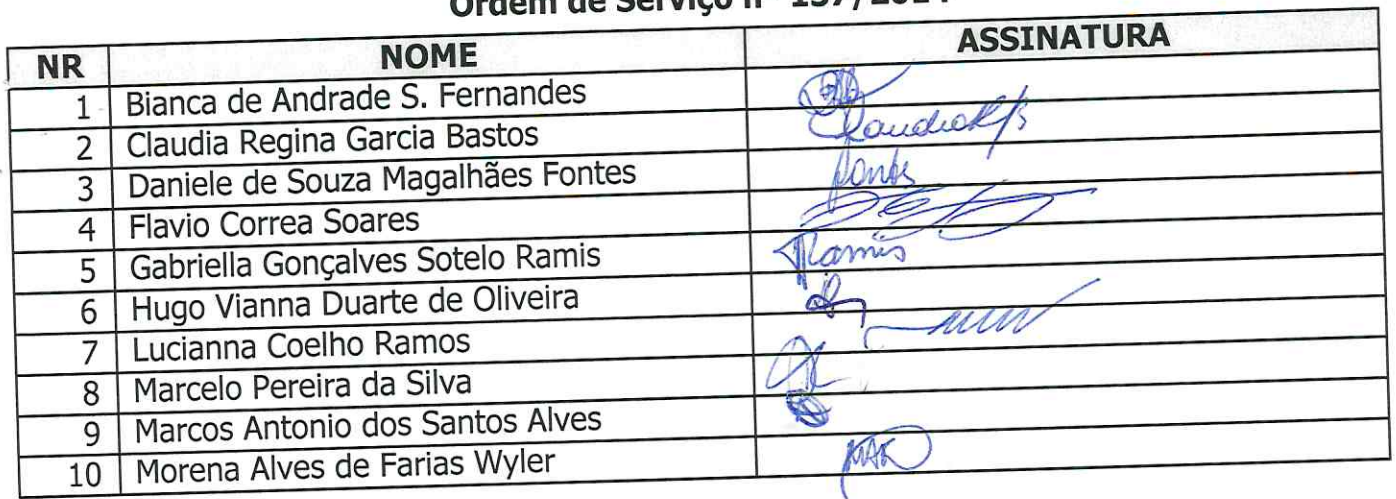 Ordem de Serviço nº 137/2014
NR NOME ASSINATURA
1 Bianca de Andrade S. Fernandes
2 Claudia Regina Garcia Bastos
3 Daniele de Souza Magalhães Fontes Fontes
4 Flavio Correa Soares
5 Gabriella Gonçalves Sotelo Ramis Ramis
6 Hugo Vianna Duarte de Oliveira
7 Lucianna Coelho Ramos
8 Marcelo Pereira da Silva
9 Marcos Antonio dos Santos Alves
10 Morena Alves de Farias Wyler